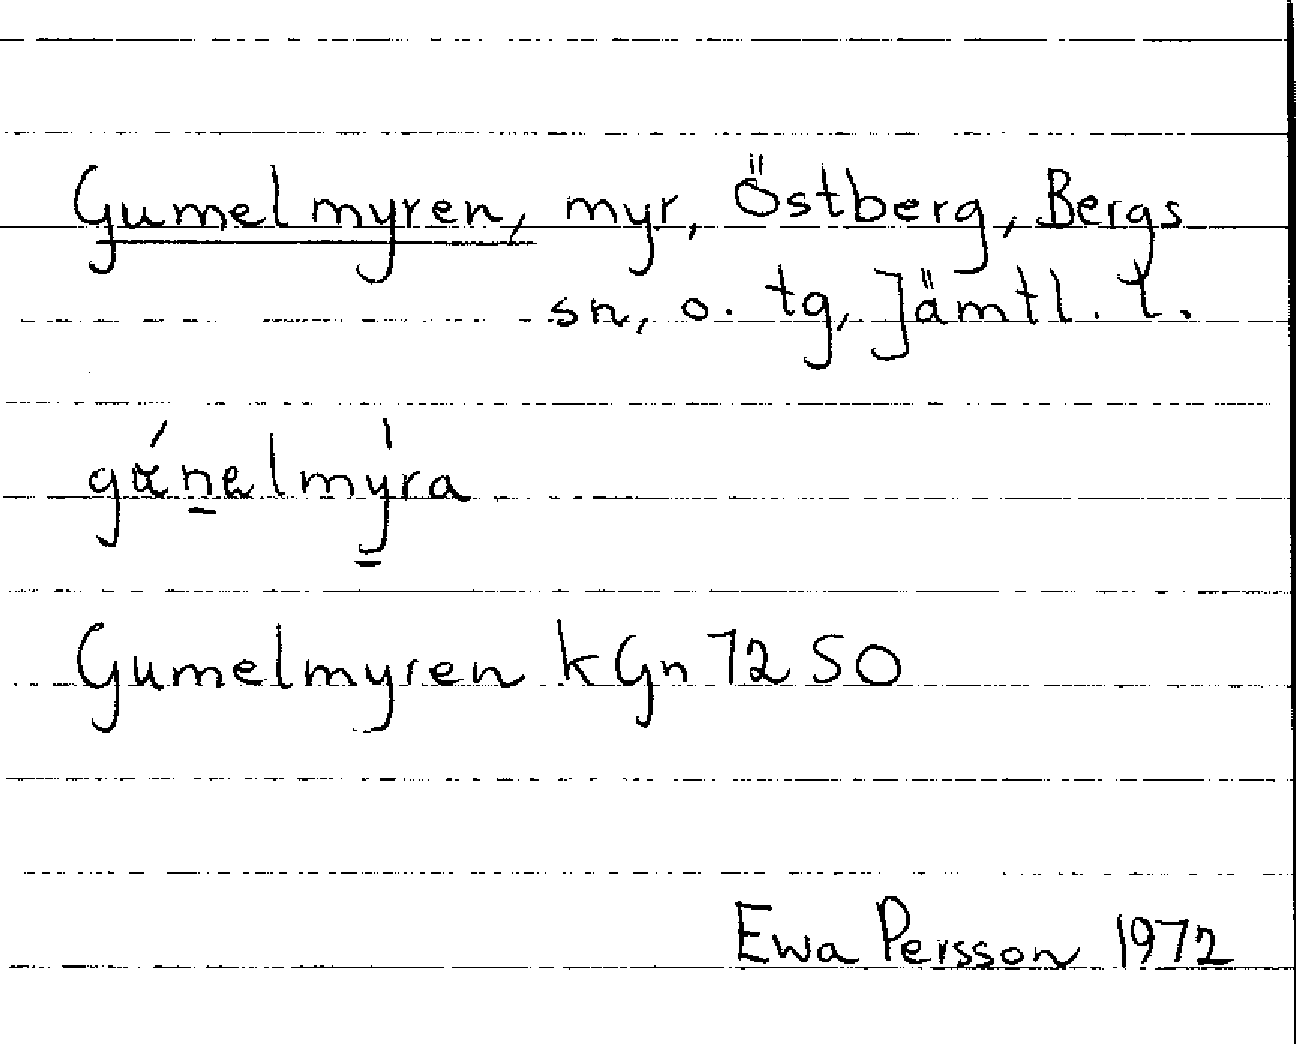 Gumelmyren, myr, Östberg, Bergs
sn, o. tg, Jämtl. l.
gǽnelmy̍ra
Gumelmyren kGn 7250
Ewa Persson 1972